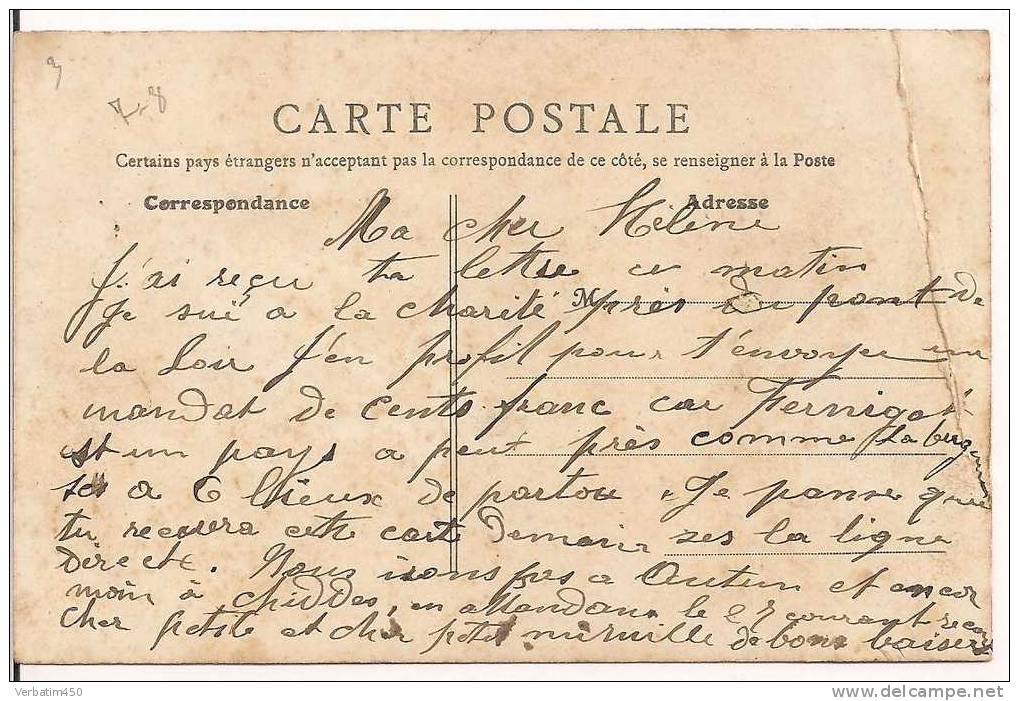 3
7-8
CARTE POSTALE
Certains pays étrangers n'acceptant pas la correspondance de ce côté, se renseigner à la Poste
Correspondance Adresse
Ma cher Hélène
J'ai reçu ta lettre ce matin
M
Je sui a la charité près du pont de
la Loir J'en profil pour t'envoyer un
mandat de cents franc car Fernigot
est un pays a peut près comme La
a 6 lieux de partou Je panse que
tu recevera cette carte demain ses la ligne
direct. Nous irons pas a Autun et encor
moin à chiddes, en attendant le 27 courant
cher petite et cher petit de bons baisers
Verbatim450 http://www.delcampe.net